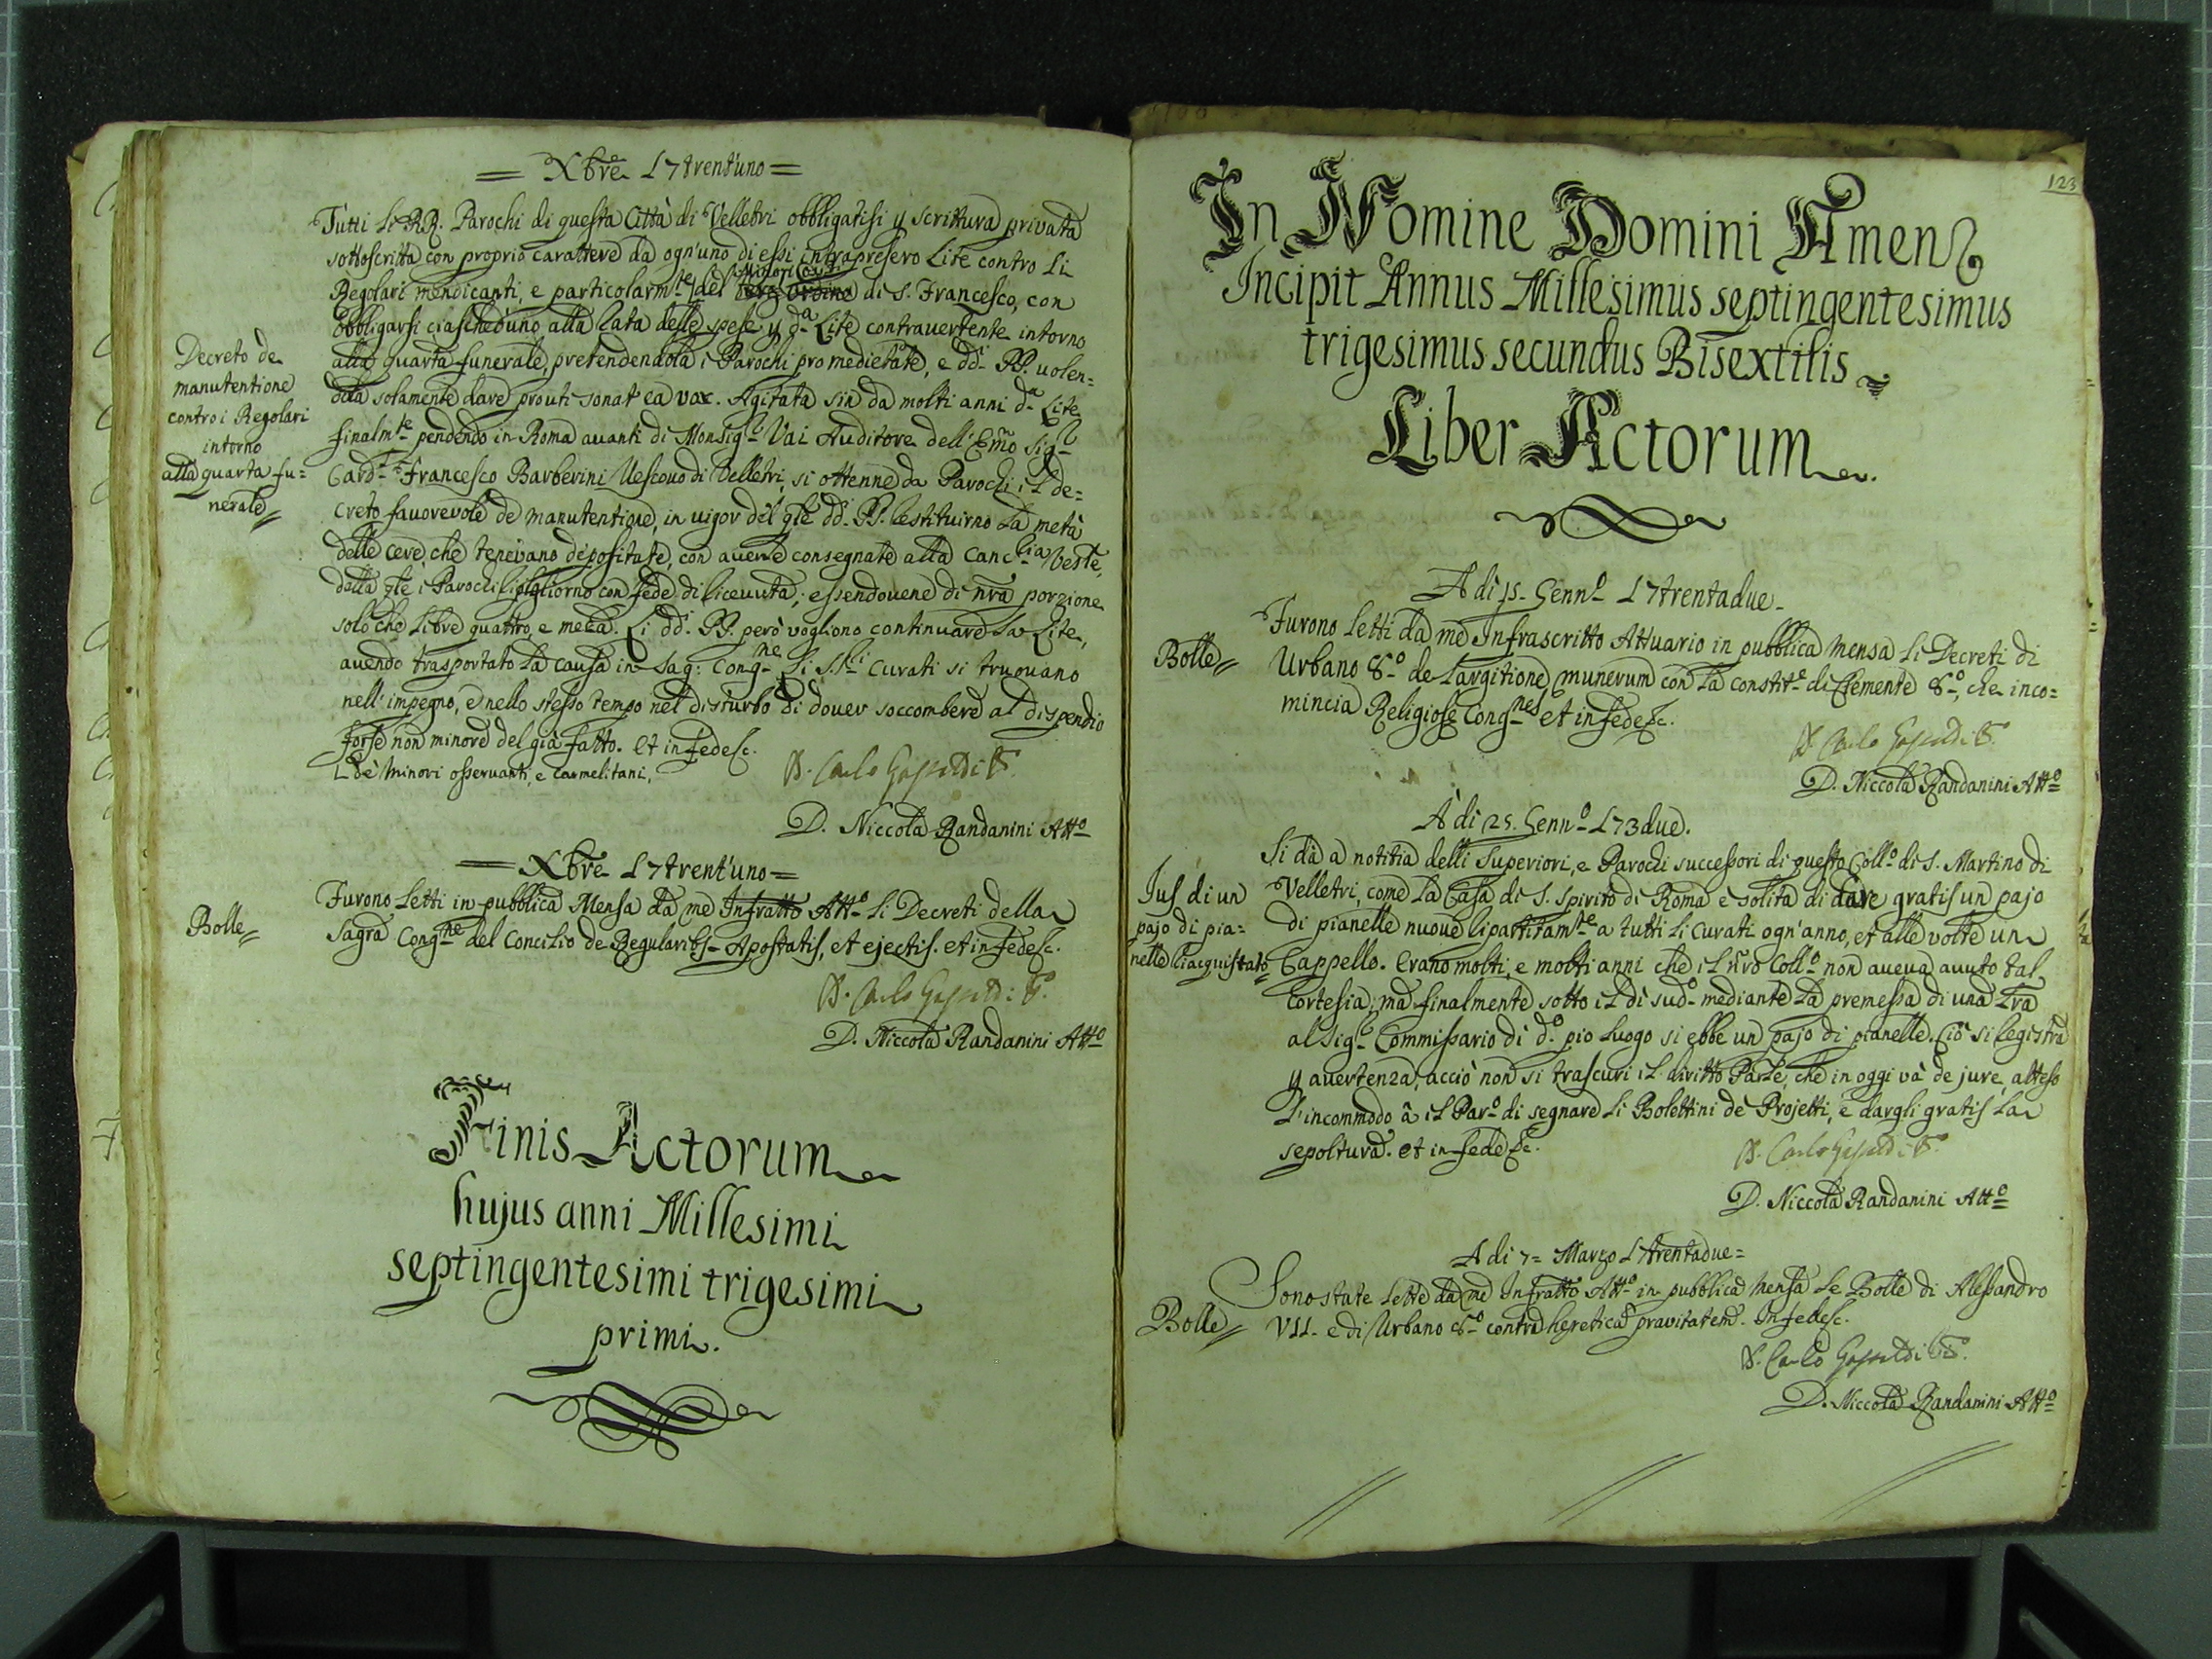 = Xbre 17trent'uno =
Tutti li RR. Parochi di questa Città di Velletri obbligatisi p scrittura privata
sottoscritta con proprio carattere da ogn'uno di essi intrapresero Lite contro li
Minori Conv.li
Regolari mendicanti, e particolarmte del terz'ordine di S. Francesco, con
obbligarsi ciascheduno alla rata delle spese p da Lite contravertente intorno
alla quarta funerale, pretendendola i Parochi pro medietate, e dd. PP. volen=
dola solamente dare prouti sonat ea vox. Agitata sin da molti anni da Lite
finalmte pendendo in Roma avanti di Monsigr Vai Auditore dell'Emo Sigr
Cardl Francesco Barberini Vescovo di Velletri, si ottenne da Parochi il de=
creto favorevole de manutentione, in vigor del qle dd. PP. restituirno la metà
delle cere, che tenevano depositate, con averle consegnate alla Cancria Veste,
dalla qle i Parochi ripigliorno con fede di ricevuta; essendovene di nra porzione
solo che libre quattro, e meza. Li dd. PP. però vogliono continuare la Lite,
avendo trasportato la causa in Sag: Congne Li SSri Curati si truovano
nell'impegno, e nello stesso tempo nel disturbo di dover soccombere al dispendio
forse non minore del già fatto. et in fede &c.
L de Minori osservanti, e Carmelitani,
D. Carlo Gasparri P.
D. Niccola Randanini Atto
Decreto de
manutentione
contro i Regolari
intorno
alla quarta fu=
nerale
= Xbre 17trent'uno =
Furono letti in pubblica Mensa da me Infratto Atto li Decreti della
Sagra Congne del Concilio de Regularibs Apostatis, et ejectis. et in fede &c.
Bolle
D. Niccola Randanini Atto
Finis Actorum
hujus anni Millesimi
septingentesimi trigesimi
primi.
123
In Nomine Domini Amen
Incipit Annus Millesimus septingentesimus
trigesimus secundus Bisextilis
Liber Actorum
A di 15. Genno 17trentadue
Furono letti da me Infrascritto Attuario in pubblica mensa li Decreti di
Urbano 8o de largitione munerum con la constite di Clemente 8o, che inco=
mincia Religiose Congnes et in fede &c.
Bolle
D. Niccola Randanini Atto
A di 25. Genno 173due.
Si dà a notitia delli Superiori, e Parochi successori di questo Collo di S. Martino di
Velletri, come la Casa di S. Spirito di Roma è solita di dare gratis un pajo
di pianelle nuove ripartitamte a tutti li Curati ogn'anno, et alle volte un
Cappello. Erano molti, e molti anni che il nro Collo non aveva avuto tal
cortesia; ma finalmente sotto il dì sudo mediante la premessa di una lra
al Sigr Commissario di do pio luogo si ebbe un pajo di pianelle. Ciò si registra
p avertenza, acciò non si trascuri il diritto Parle, che in oggi và de jure, atteso
l'incommodo à il Paro di segnare li Bolettini de Projetti, e dargli gratis la
sepoltura. et in fede &c.
Jus di un
pajo di pia=
nelle riacquistato
D. Niccola Randanini Atto
A di 7= Marzo 17trentadue=
Sono state lette da me Infratto Atto in pubblica mensa le Bolle di Alessandro
VII. e di Urbano 8o contra heretica pravitatem. In fede &c.
Bolle
D. Niccola Randanini Atto